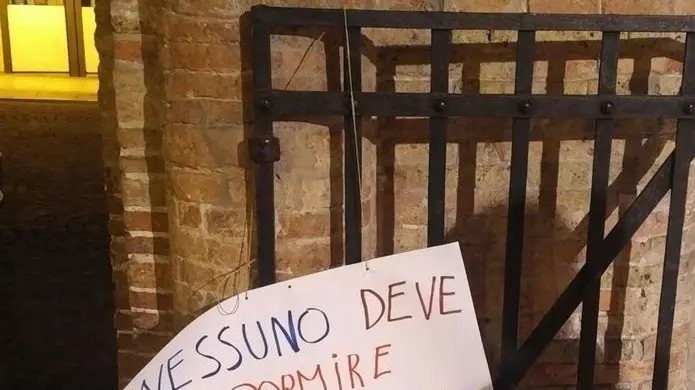 NESSUNO DEVE
DORMIRE